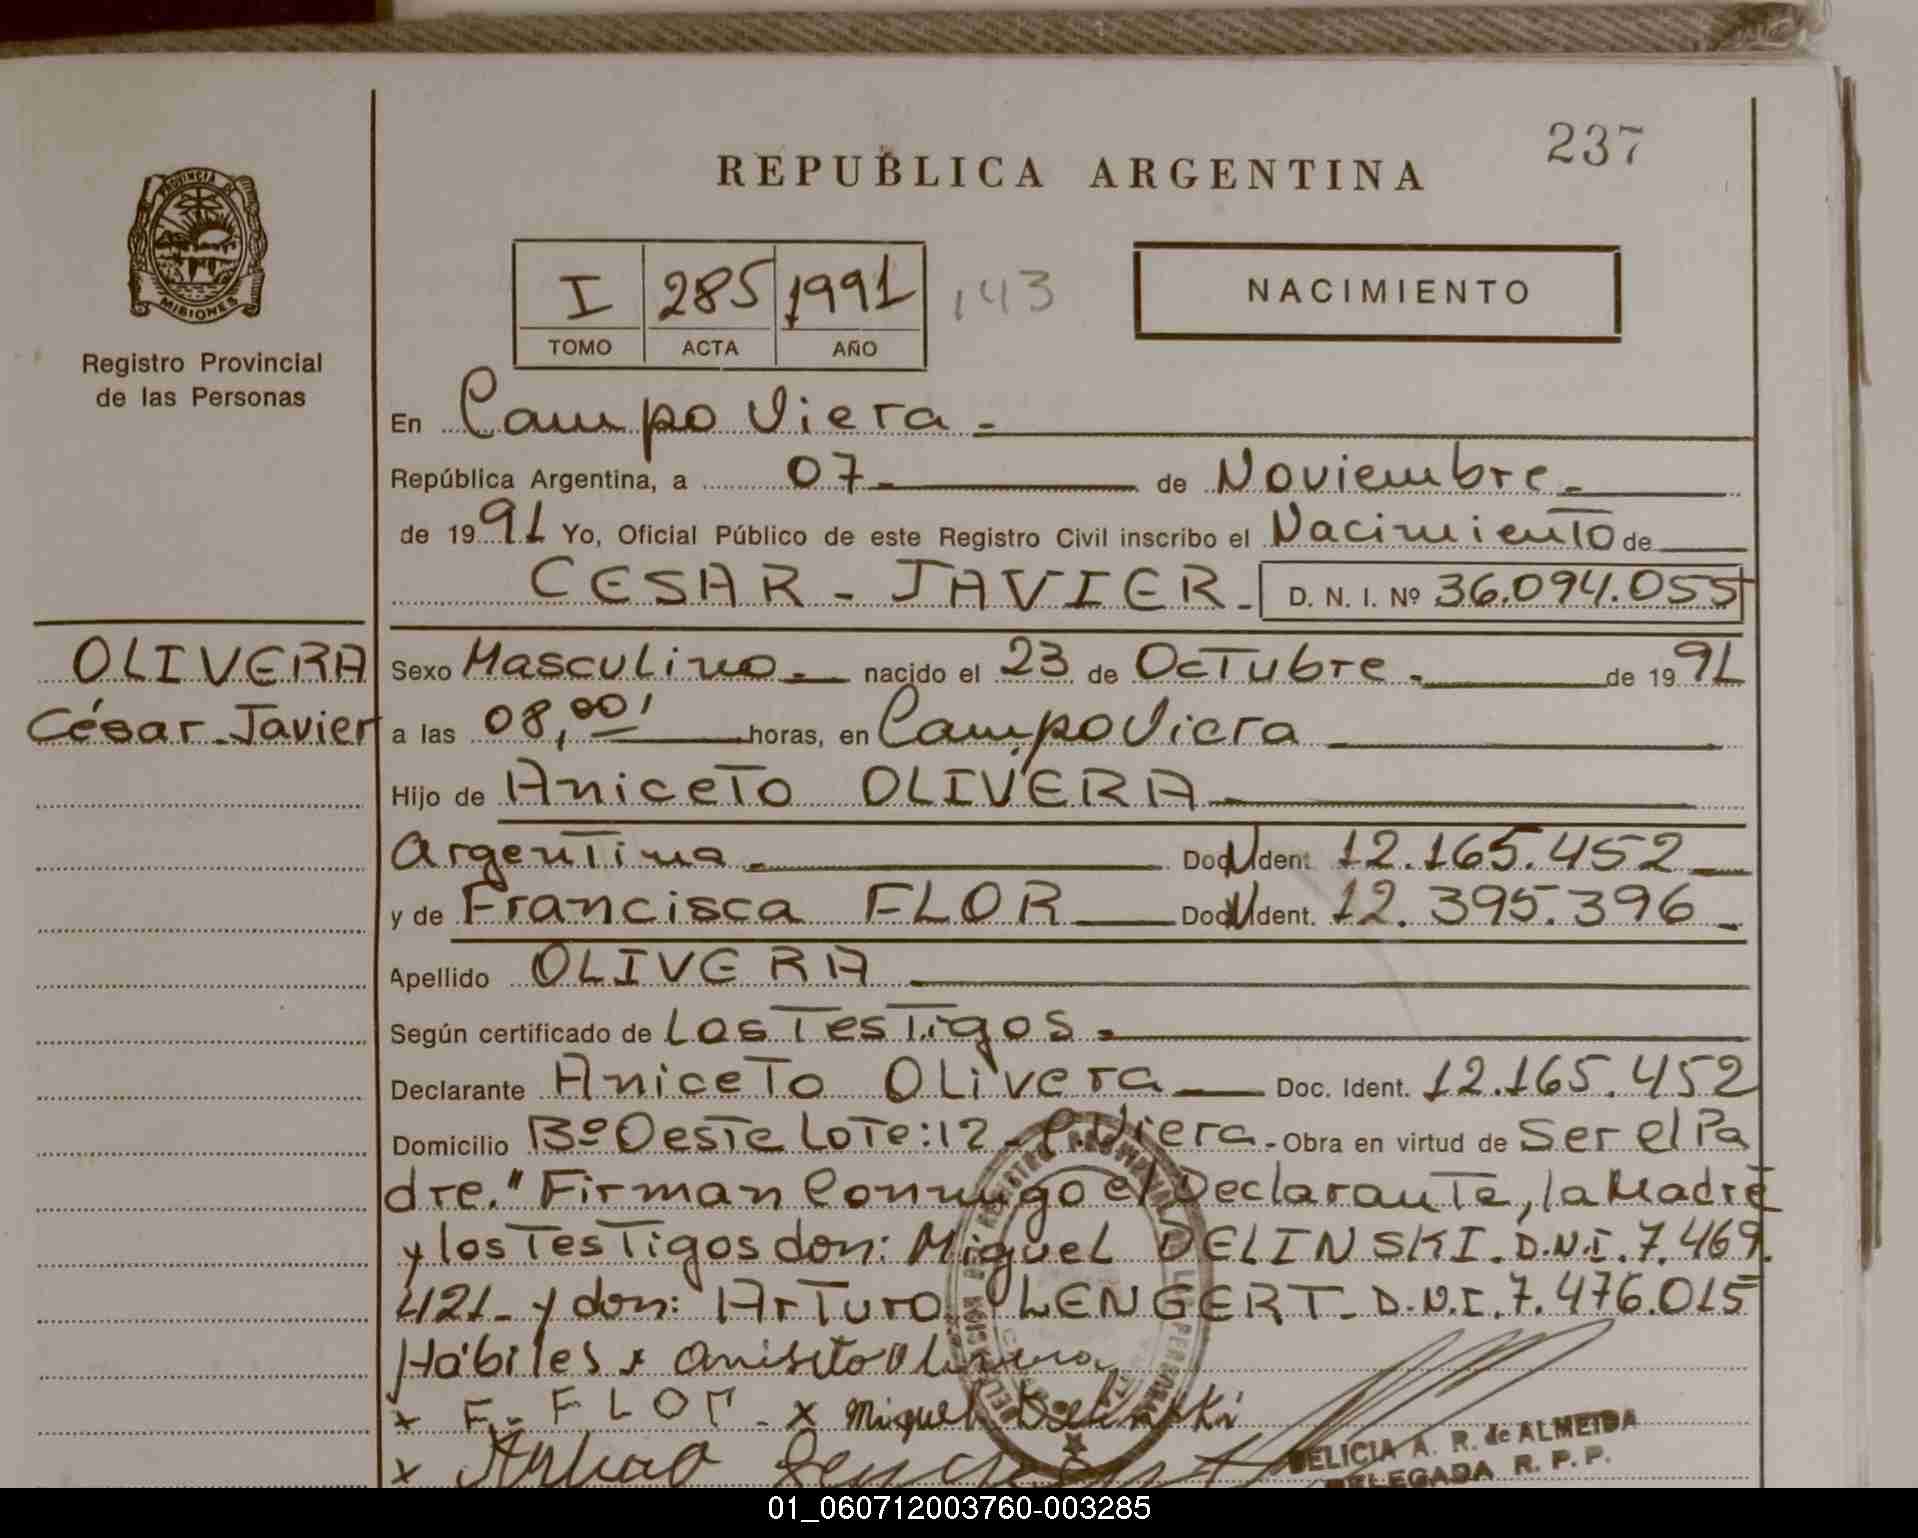 237
REPUBLICA ARGENTINA
PROVINCIA DE
MISIONES
Registro Provincial
de las Personas
I 285 1991 143
TOMO ACTA AÑO
NACIMIENTO
En Campo Viera.-
República Argentina, a 07.- de Noviembre.-
de 1991 Yo, Oficial Público de este Registro Civil inscribo el Nacimiento de
CESAR - JAVIER.- D. N. I. Nº 36.094.055
OLIVERA
César Javier
Sexo Masculino.- nacido el 23 de Octubre.- de 1991
a las 08,00' horas, en Campo Viera
Hijo de Aniceto OLIVERA
Argentina.- Doc. Ident. 12.165.452
y de Francisca FLOR Doc. Ident. 12.395.396
Apellido OLIVERA
Según certificado de Los Testigos.-
Declarante Aniceto Olivera Doc. Ident. 12.165.452
Domicilio Bº Oeste Lote:12 - C. Viera.- Obra en virtud de Ser el Pa
dre." Firman Conmigo el Declarante, la Madre
y los Testigos don: Miguel DELINSKI. D.N.I. 7.469.
421_ y don: Arturo LENGERT. D.N.I. 7.476.015
Hábiles x Aniseto Olivera
x F. FLOr. x Miguel Delinski
x Arturo
FELICIA A. R. de ALMEIDA
DELEGADA R. P. P.
01_060712003760-003285